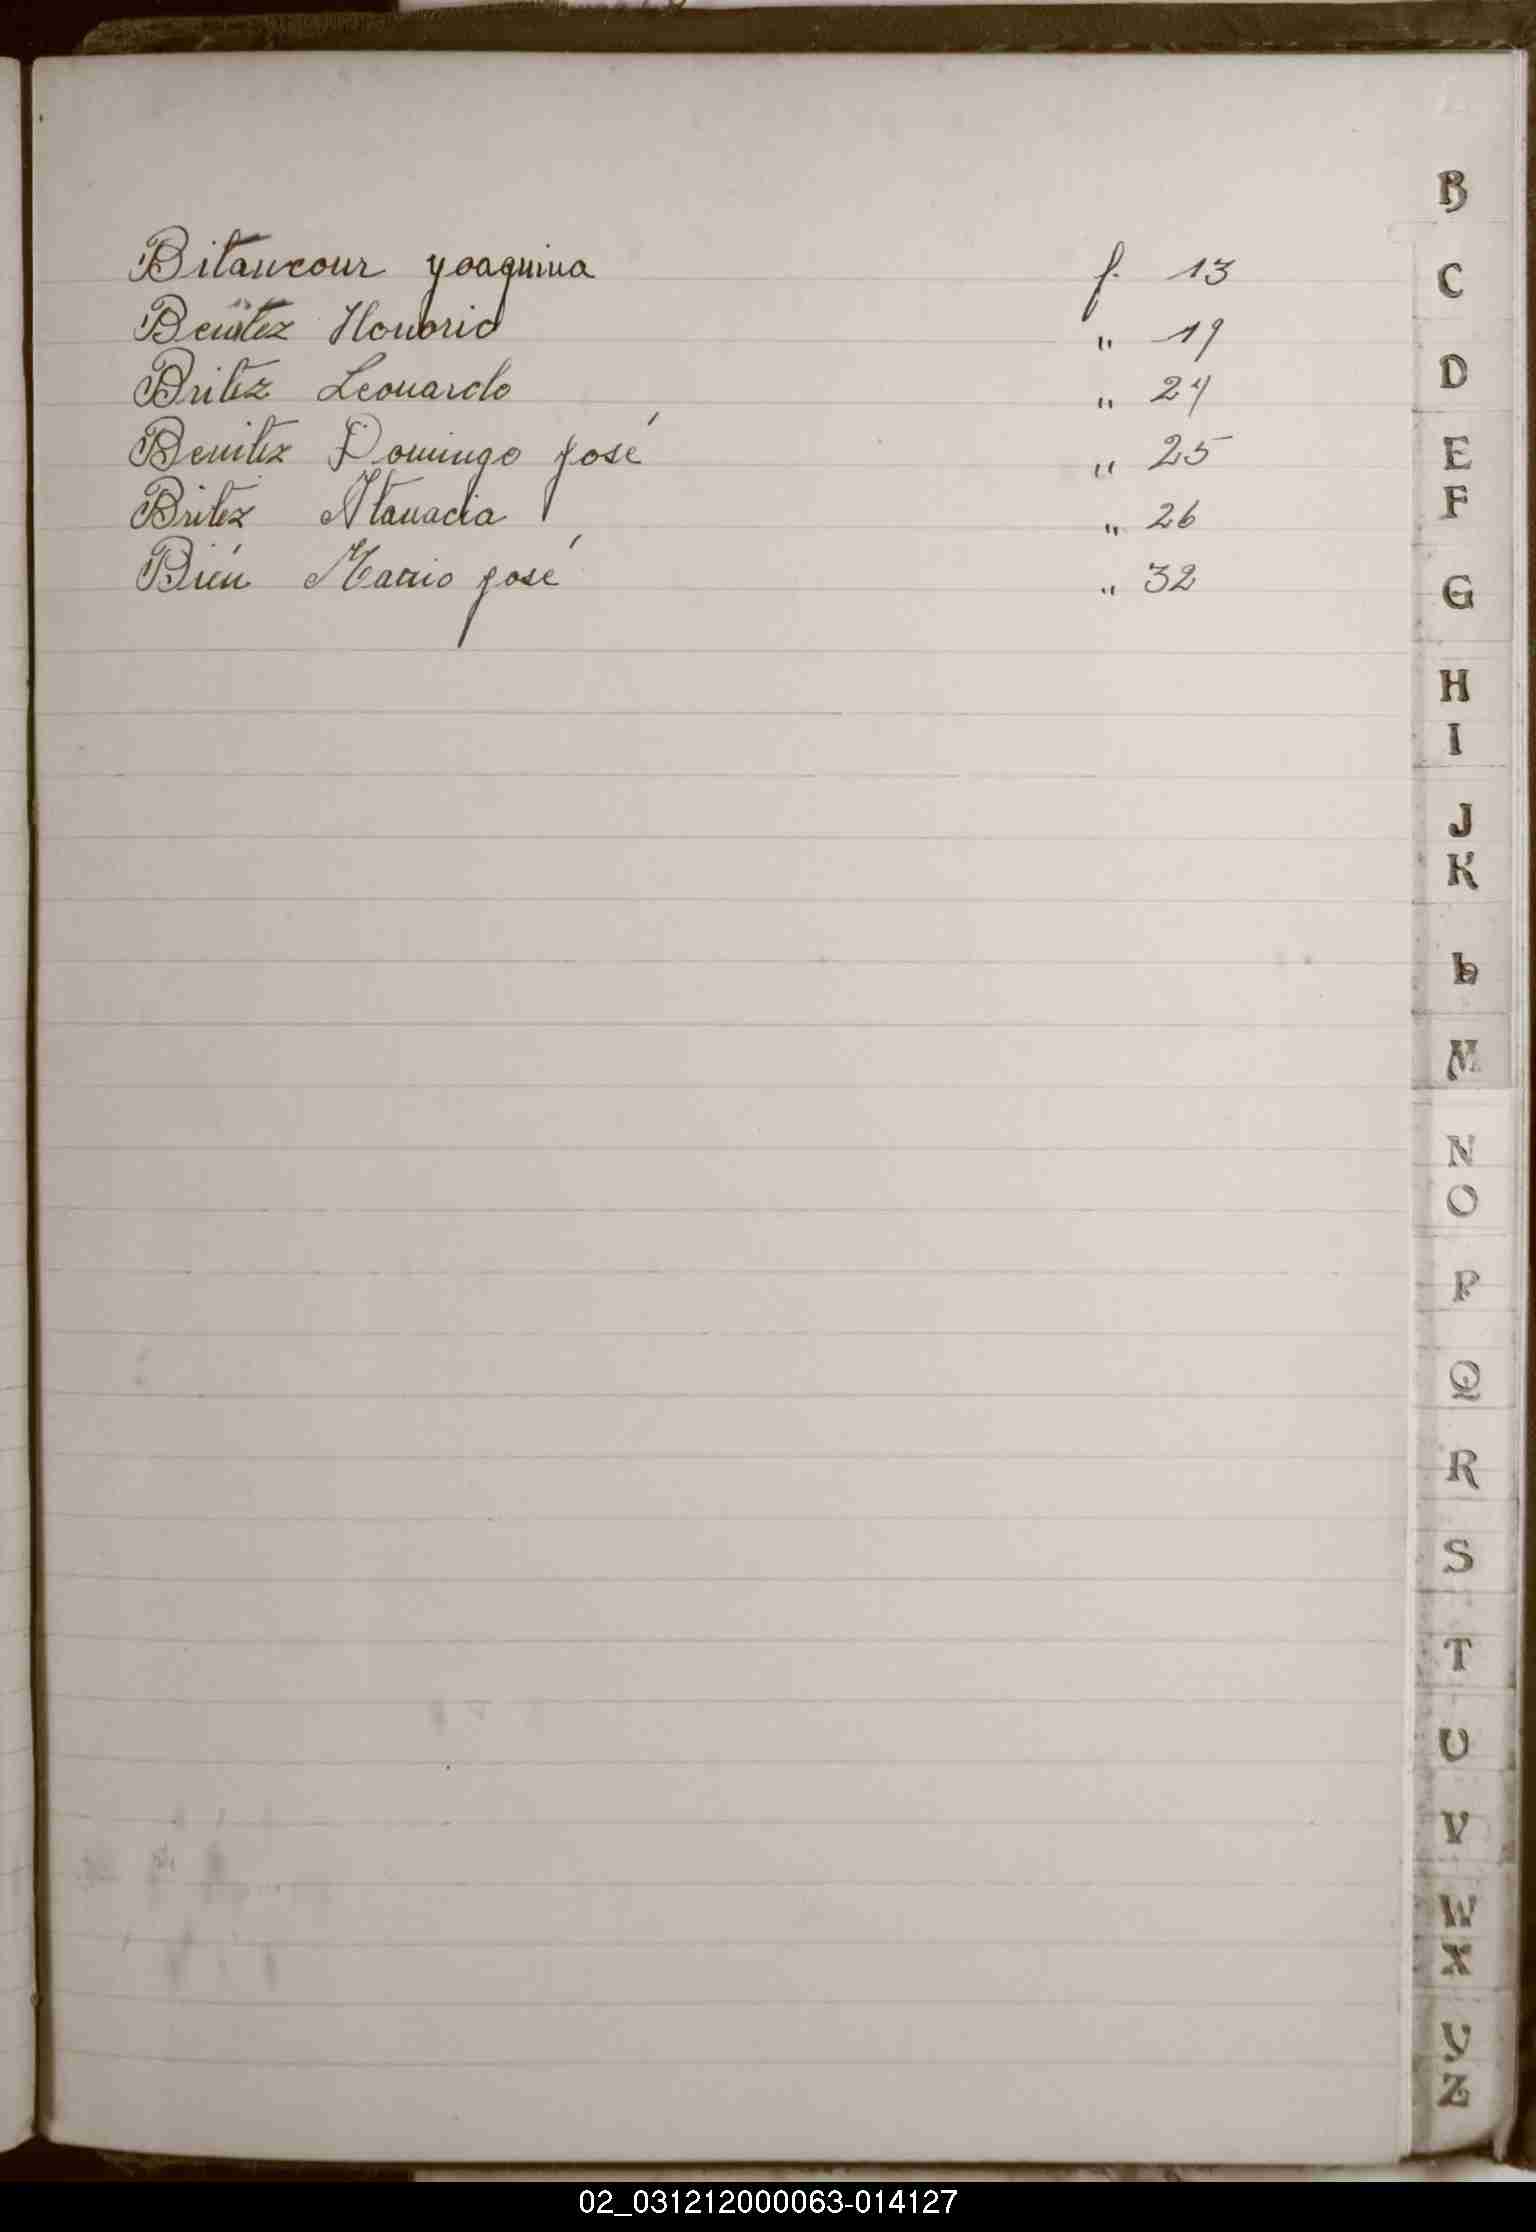 Bitancour Yoaquina f. 13
Benitez Honorio " 19
Britez Leonardo " 24
Benitez Domingo José " 25
Britez Atanacia " 26
Bién Mario José " 32
B
C
D
E
F
G
H
I
J
K
L
M
N
O
P
Q
R
S
T
U
V
W
X
Y
Z
02_031212000063-014127